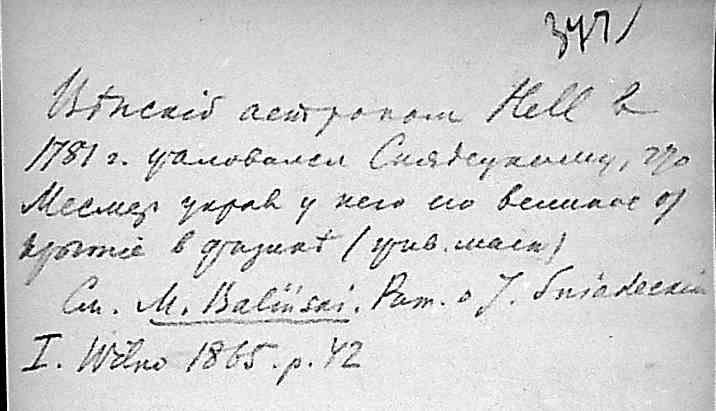 3471
Вѣнскій астроном Hell в
1781 г. жаловался Снядецкому, что
Месмер украв у него его великое от
крытие в физикѣ (жив. магн)
См. M. Baliński. Pam. o J. Śniadeckim
I. Wilno 1865. p. 42